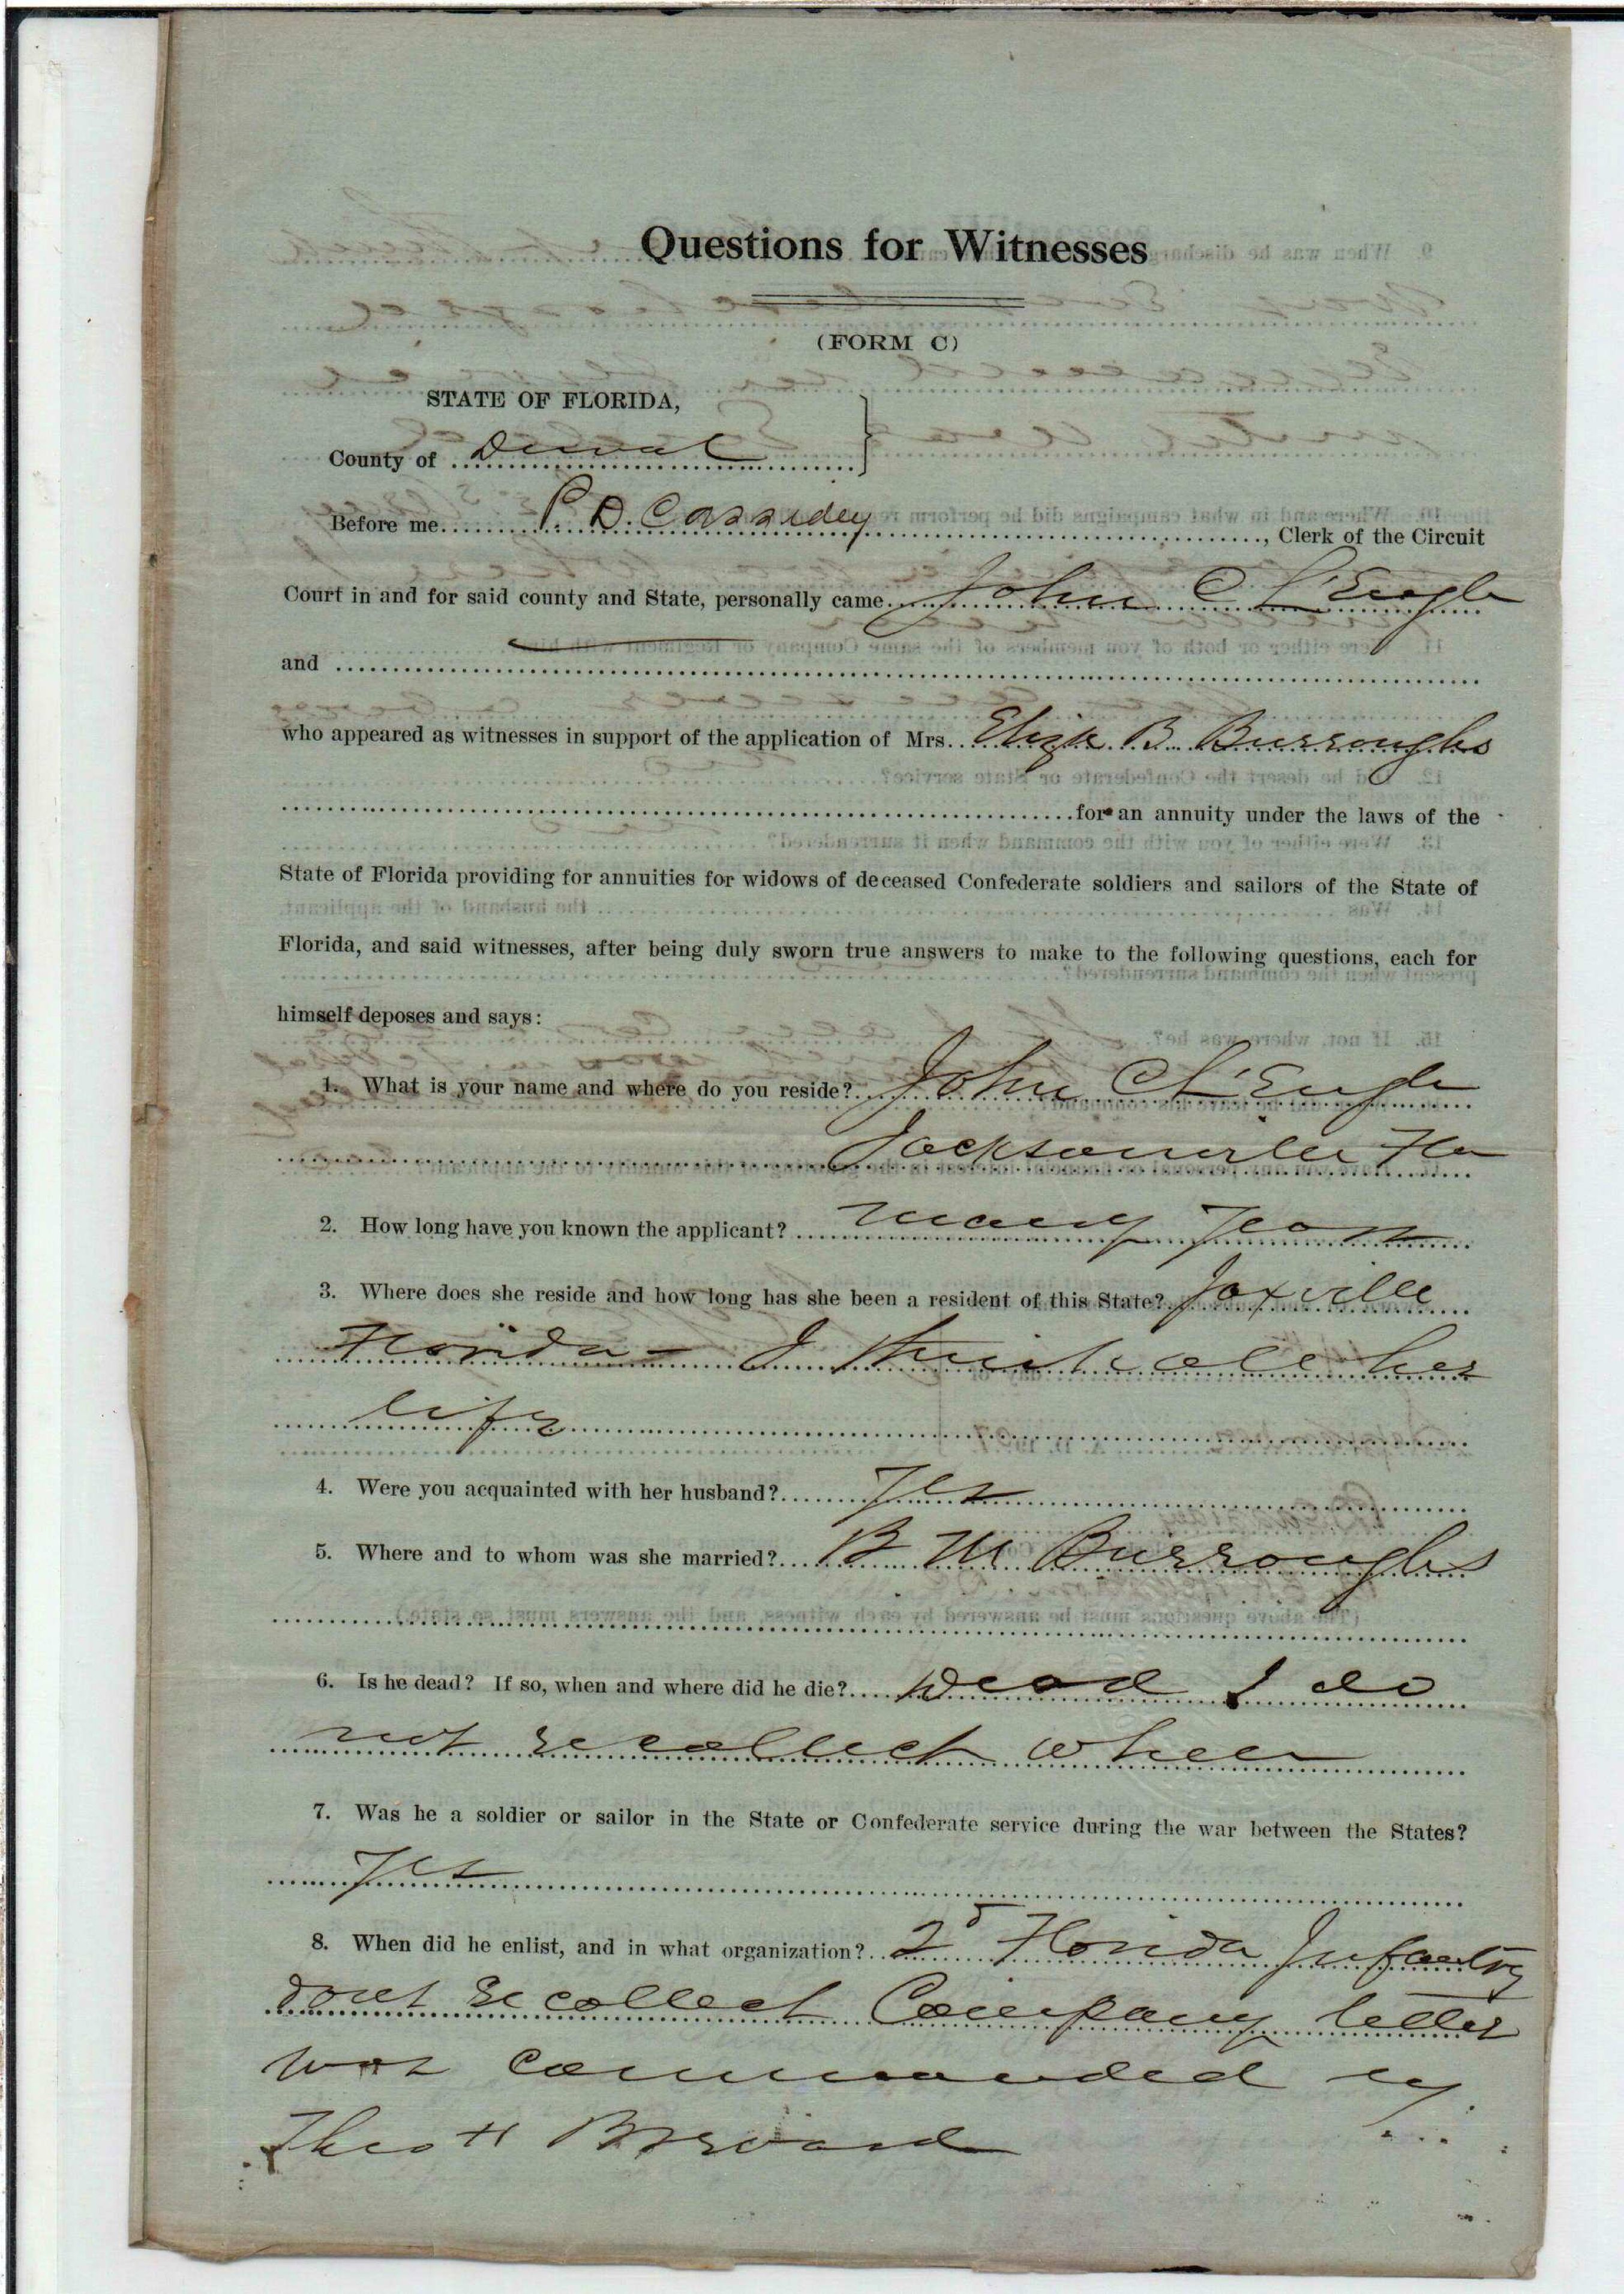 Questions for Witnesses
(FORM C)
STATE OF FLORIDA,
County of Duval
Before me P. D. Cassidey, Clerk of the Circuit
Court in and for said county and State, personally came John C L'Engle
and
who appeared as witnesses in support of the application of Mrs. Eliza B. Burroughs
for an annuity under the laws of the
State of Florida providing for annuities for widows of deceased Confederate soldiers and sailors of the State of
Florida, and said witnesses, after being duly sworn true answers to make to the following questions, each for
himself deposes and says:
1. What is your name and where do you reside? John C L'Engle
Jacksonville Fla
2. How long have you known the applicant? many years
3. Where does she reside and how long has she been a resident of this State? Jaxville
Florida - I think all her
life
4. Were you acquainted with her husband? Yes
5. Where and to whom was she married? B M Burroughs
6. Is he dead? If so, when and where did he die? Dead I do
not recollect when
7. Was he a soldier or sailor in the State or Confederate service during the war between the States?
Yes
8. When did he enlist, and in what organization? 2d Florida Infantry
dont recollect Company letter
was commanded by
Theo H Brevard